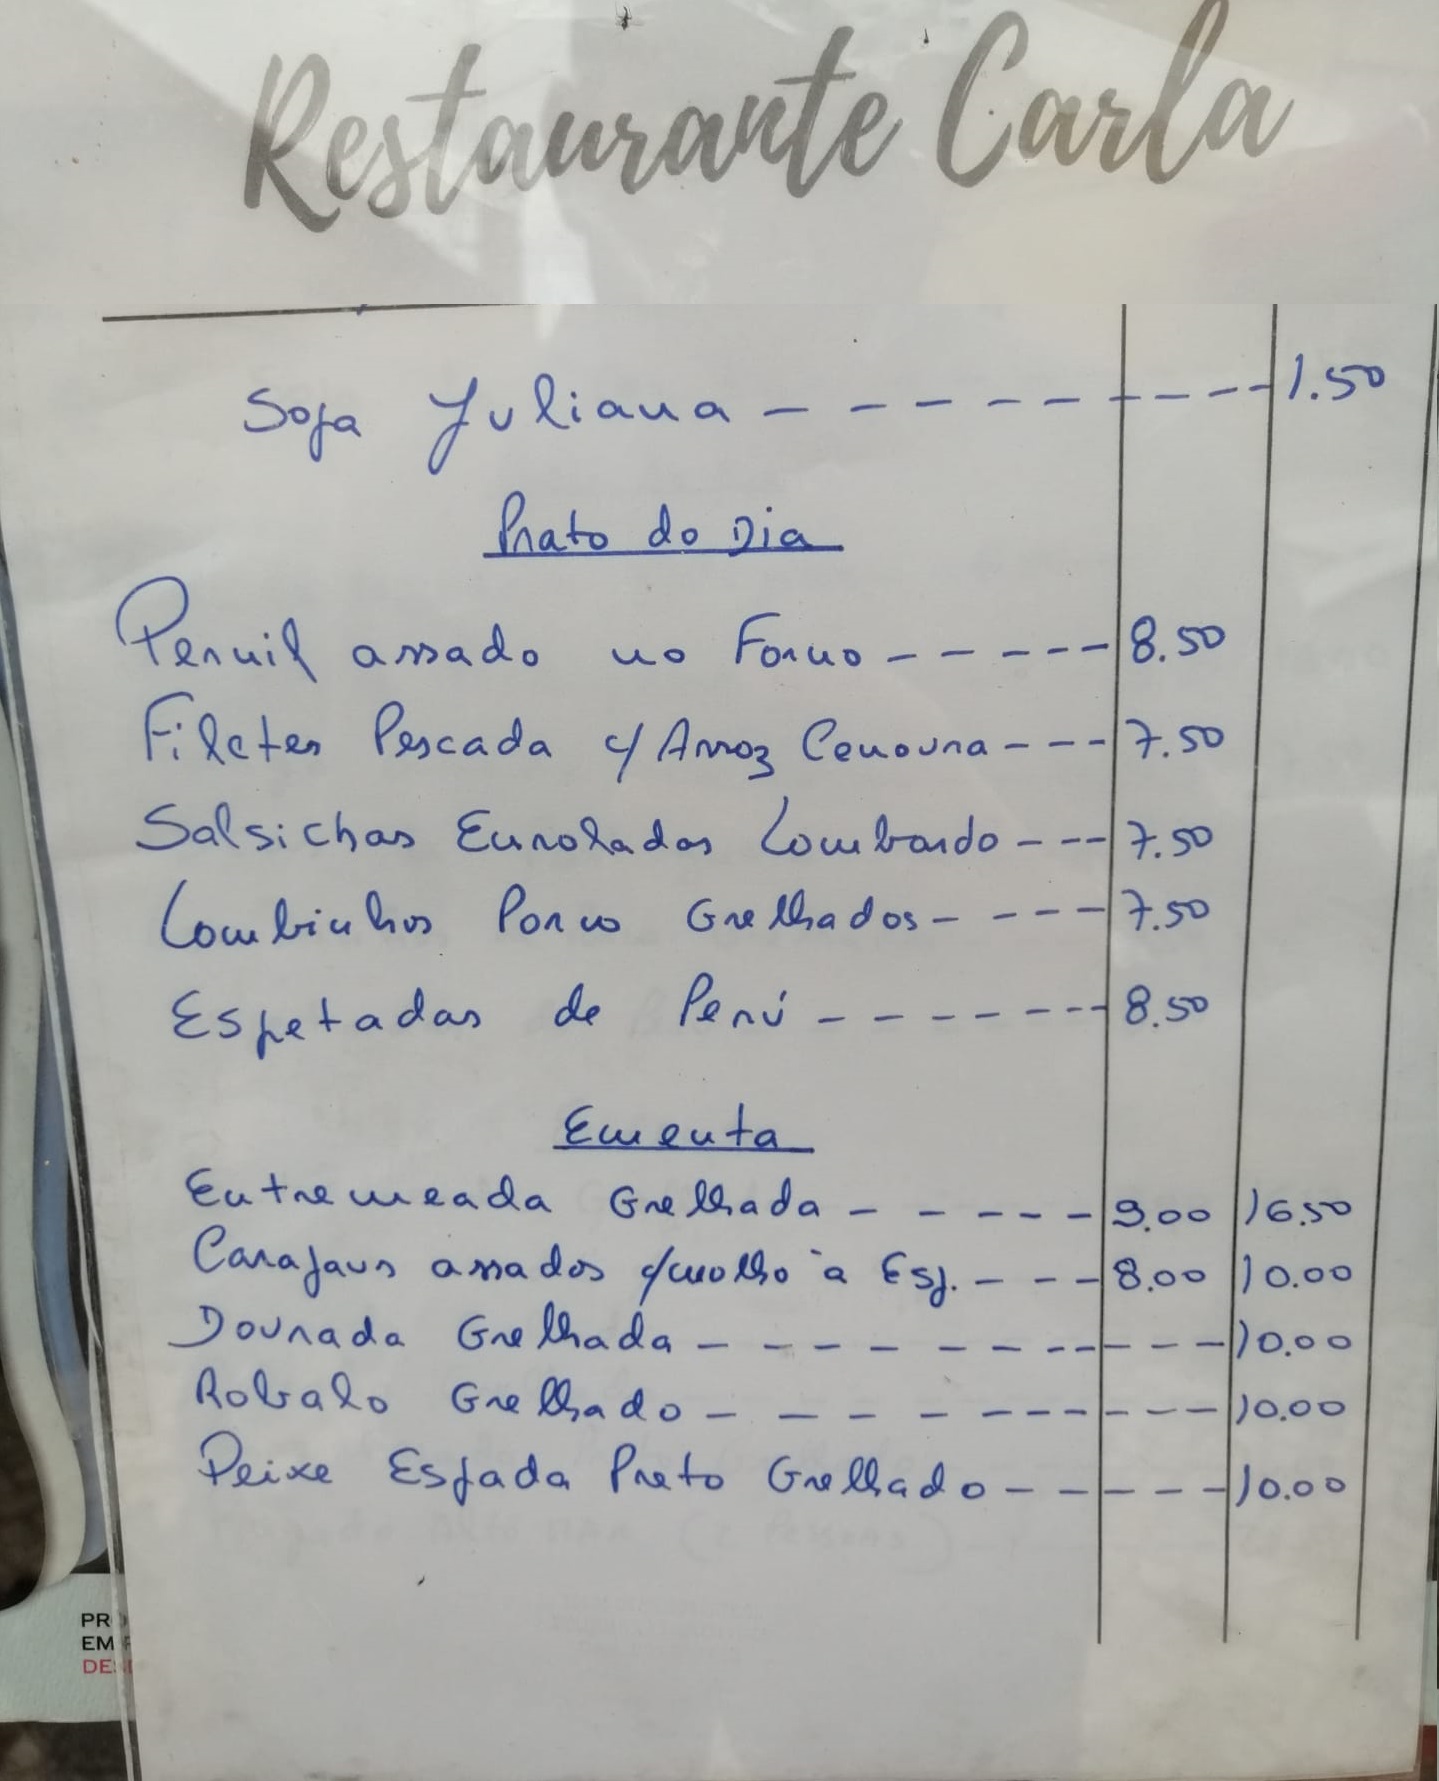 Restaurante Carla
Sopa Juliana - - - - - - - - - 1.50
Prato do Dia
Pernil assado no Forno - - - - - - 8.50
Filetes Pescada c/ Arroz Cenoura - - - - 7.50
Salsichas Enroladas Lombardo - - - - 7.50
Lombinhos Porco Grelhados - - - - - 7.50
Espetadas de Perú - - - - - - - - 8.50
Ementa
Entremeada Grelhada - - - - - - 9.00 16.50
Carapaus assados c/molho à Esp. - - - - 8.00 10.00
Dourada Grelhada - - - - - - - - - - - 10.00
Robalo Grelhado - - - - - - - - - - - 10.00
Peixe Espada Preto Grelhado - - - - - - - 10.00
PRO
EM
DE